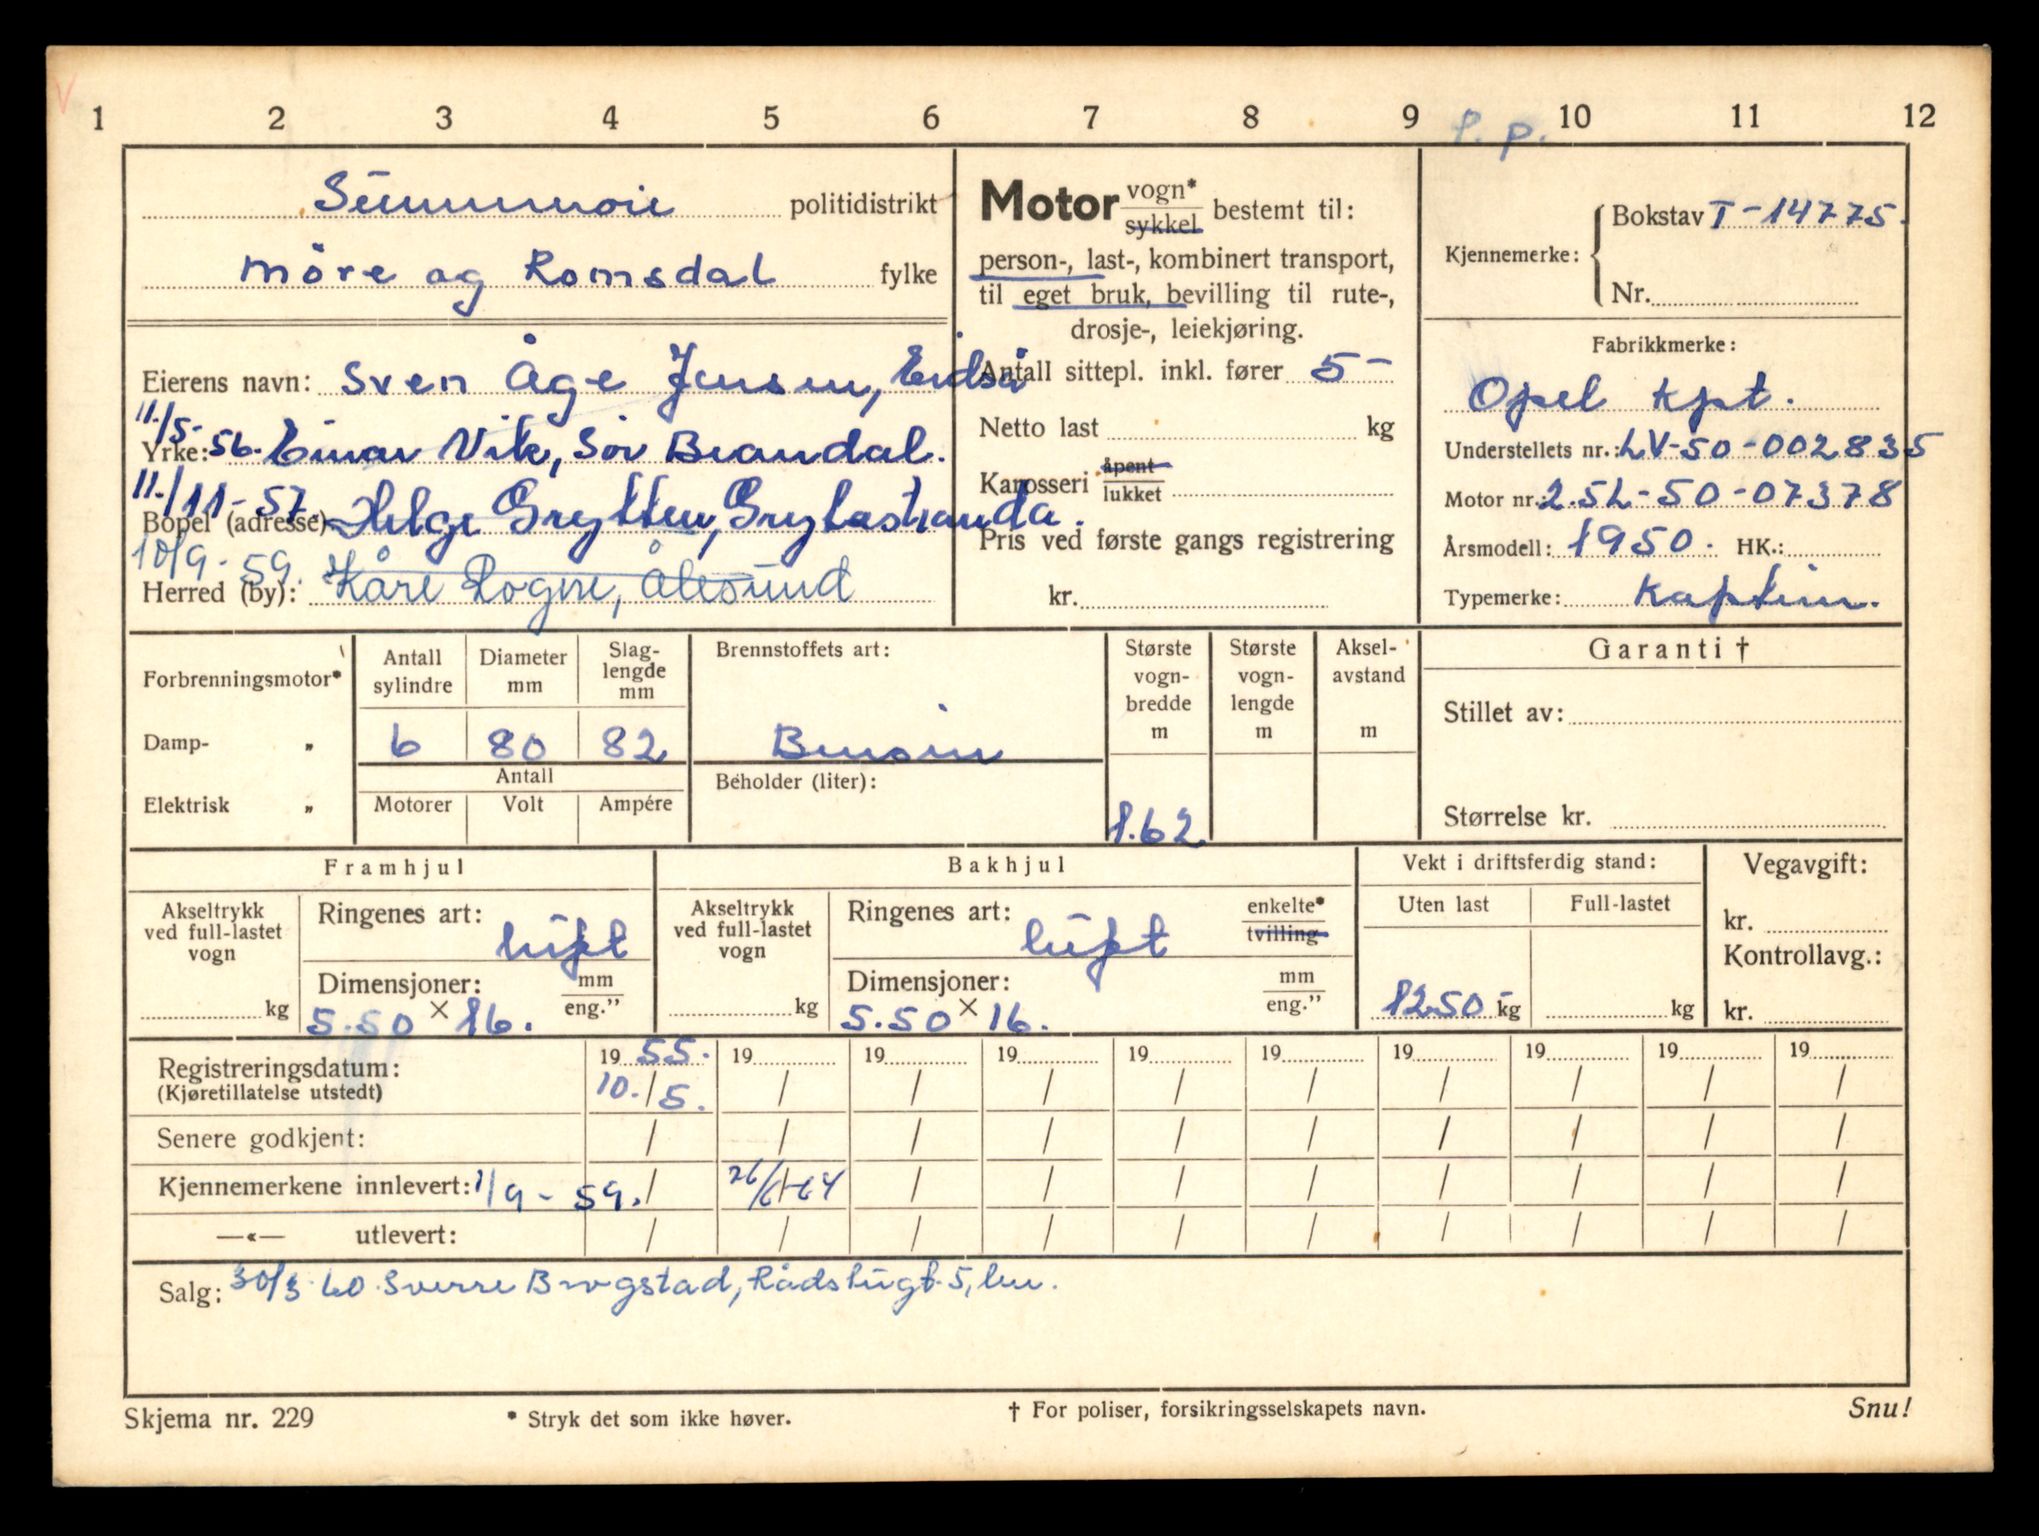 1 2 3 4 5 6 7 8 9 10 11 12
p.p.
Sunnmøre politidistrikt
Möre og Romsdal fylke
Eierens navn: Sven Åge Jensen, Eidså
11./5.-
Yrke: 56. Einar Vik, Sör Brandal.
11./11-57.
Bopel (adresse) Helge Grytten, Grytastranda.
10/9-59.
Herred (by): Kåre Rogne, Ålesund
Motor vogn* sykkel bestemt til:
person-, last-, kombinert transport,
til eget bruk, bevilling til rute-,
drosje-, leiekjøring.
Antall sittepl. inkl. fører 5-
Netto last kg
Karosseri åpent lukket
Pris ved første gangs registrering
kr.
Kjennemerke: Bokstav T-14775.
Nr.
Fabrikkmerke:
Opel Kpt.
Understellets nr.: LV-50-002835
Motor nr.: 2.5L-50-07378
Årsmodell: 1950. HK.:
Typemerke: Kaptein.
Forbrenningsmotor*
Damp- „
Elektrisk „
Antall sylindre
6
Diameter mm
80
Slag-lengde mm
82
Antall
Motorer Volt Ampére
Brennstoffets art:
Bensin
Beholder (liter):
Største vogn-bredde m
1.62
Største vogn-lengde m
Aksel-avstand m
Garanti †
Stillet av:
Størrelse kr.
Framhjul
Akseltrykk ved full-lastet vogn
kg
Ringenes art:
luft
Dimensjoner: mm eng.”
5.50 × 16.
Bakhjul
Akseltrykk ved full-lastet vogn
kg
Ringenes art: enkelte* tvilling
luft
Dimensjoner: mm eng.”
5.50 × 16.
Vekt i driftsferdig stand:
Uten last Full-lastet
1250 kg kg
Vegavgift:
kr.
Kontrollavg.:
kr.
Registreringsdatum: 19 55. 19 19 19 19 19 19 19 19 19
(Kjøretillatelse utstedt) 10./5. / / / / / / / / /
Senere godkjent: / / / / / / / / / /
Kjennemerkene innlevert: 1/9-59. / 26/6-64 / / / / / / / /
—«— utlevert: / / / / / / / / / /
Salg: 30/3-60. Sverre Brogstad, Rådstugt. 5, her.
Skjema nr. 229
* Stryk det som ikke høver.
† For poliser, forsikringsselskapets navn.
Snu!